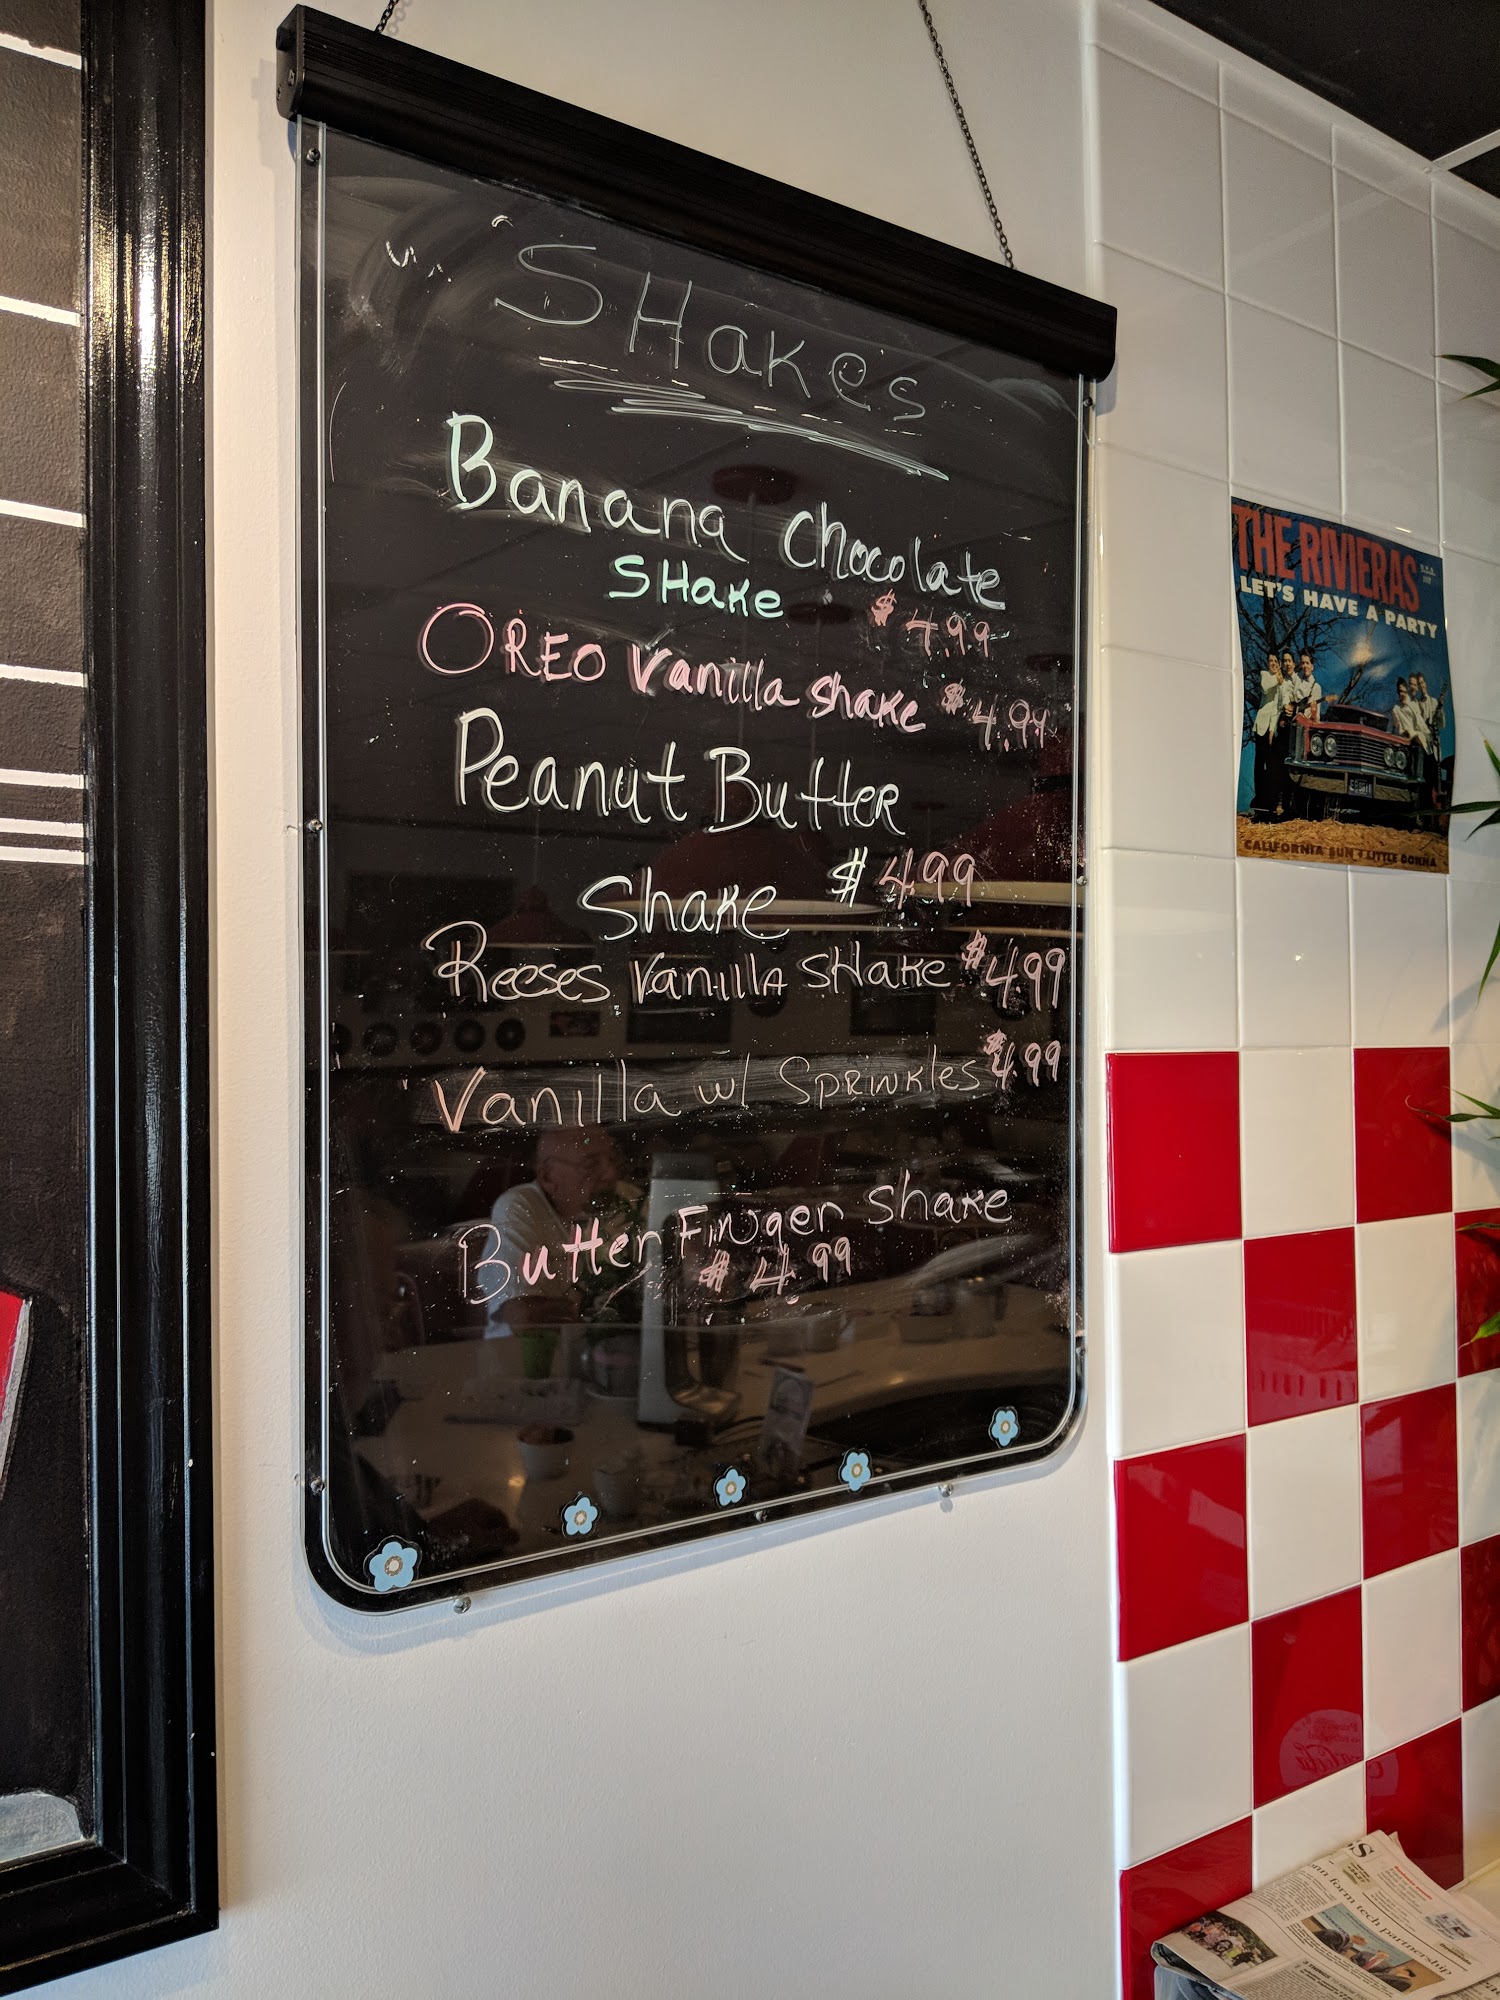 SHakes
Banana chocolate
SHake $4.99
OREO Vanilla shake $4.99
Peanut Butter
Shake $4.99
Reeses Vanilla SHake $4.99
Vanilla w/ SPRINKles $4.99
Butter Finger shake
$4.99
THE RIVIERAS
LET'S HAVE A PARTY
CALIFORNIA SUN • LITTLE DONNA
form tech partnership